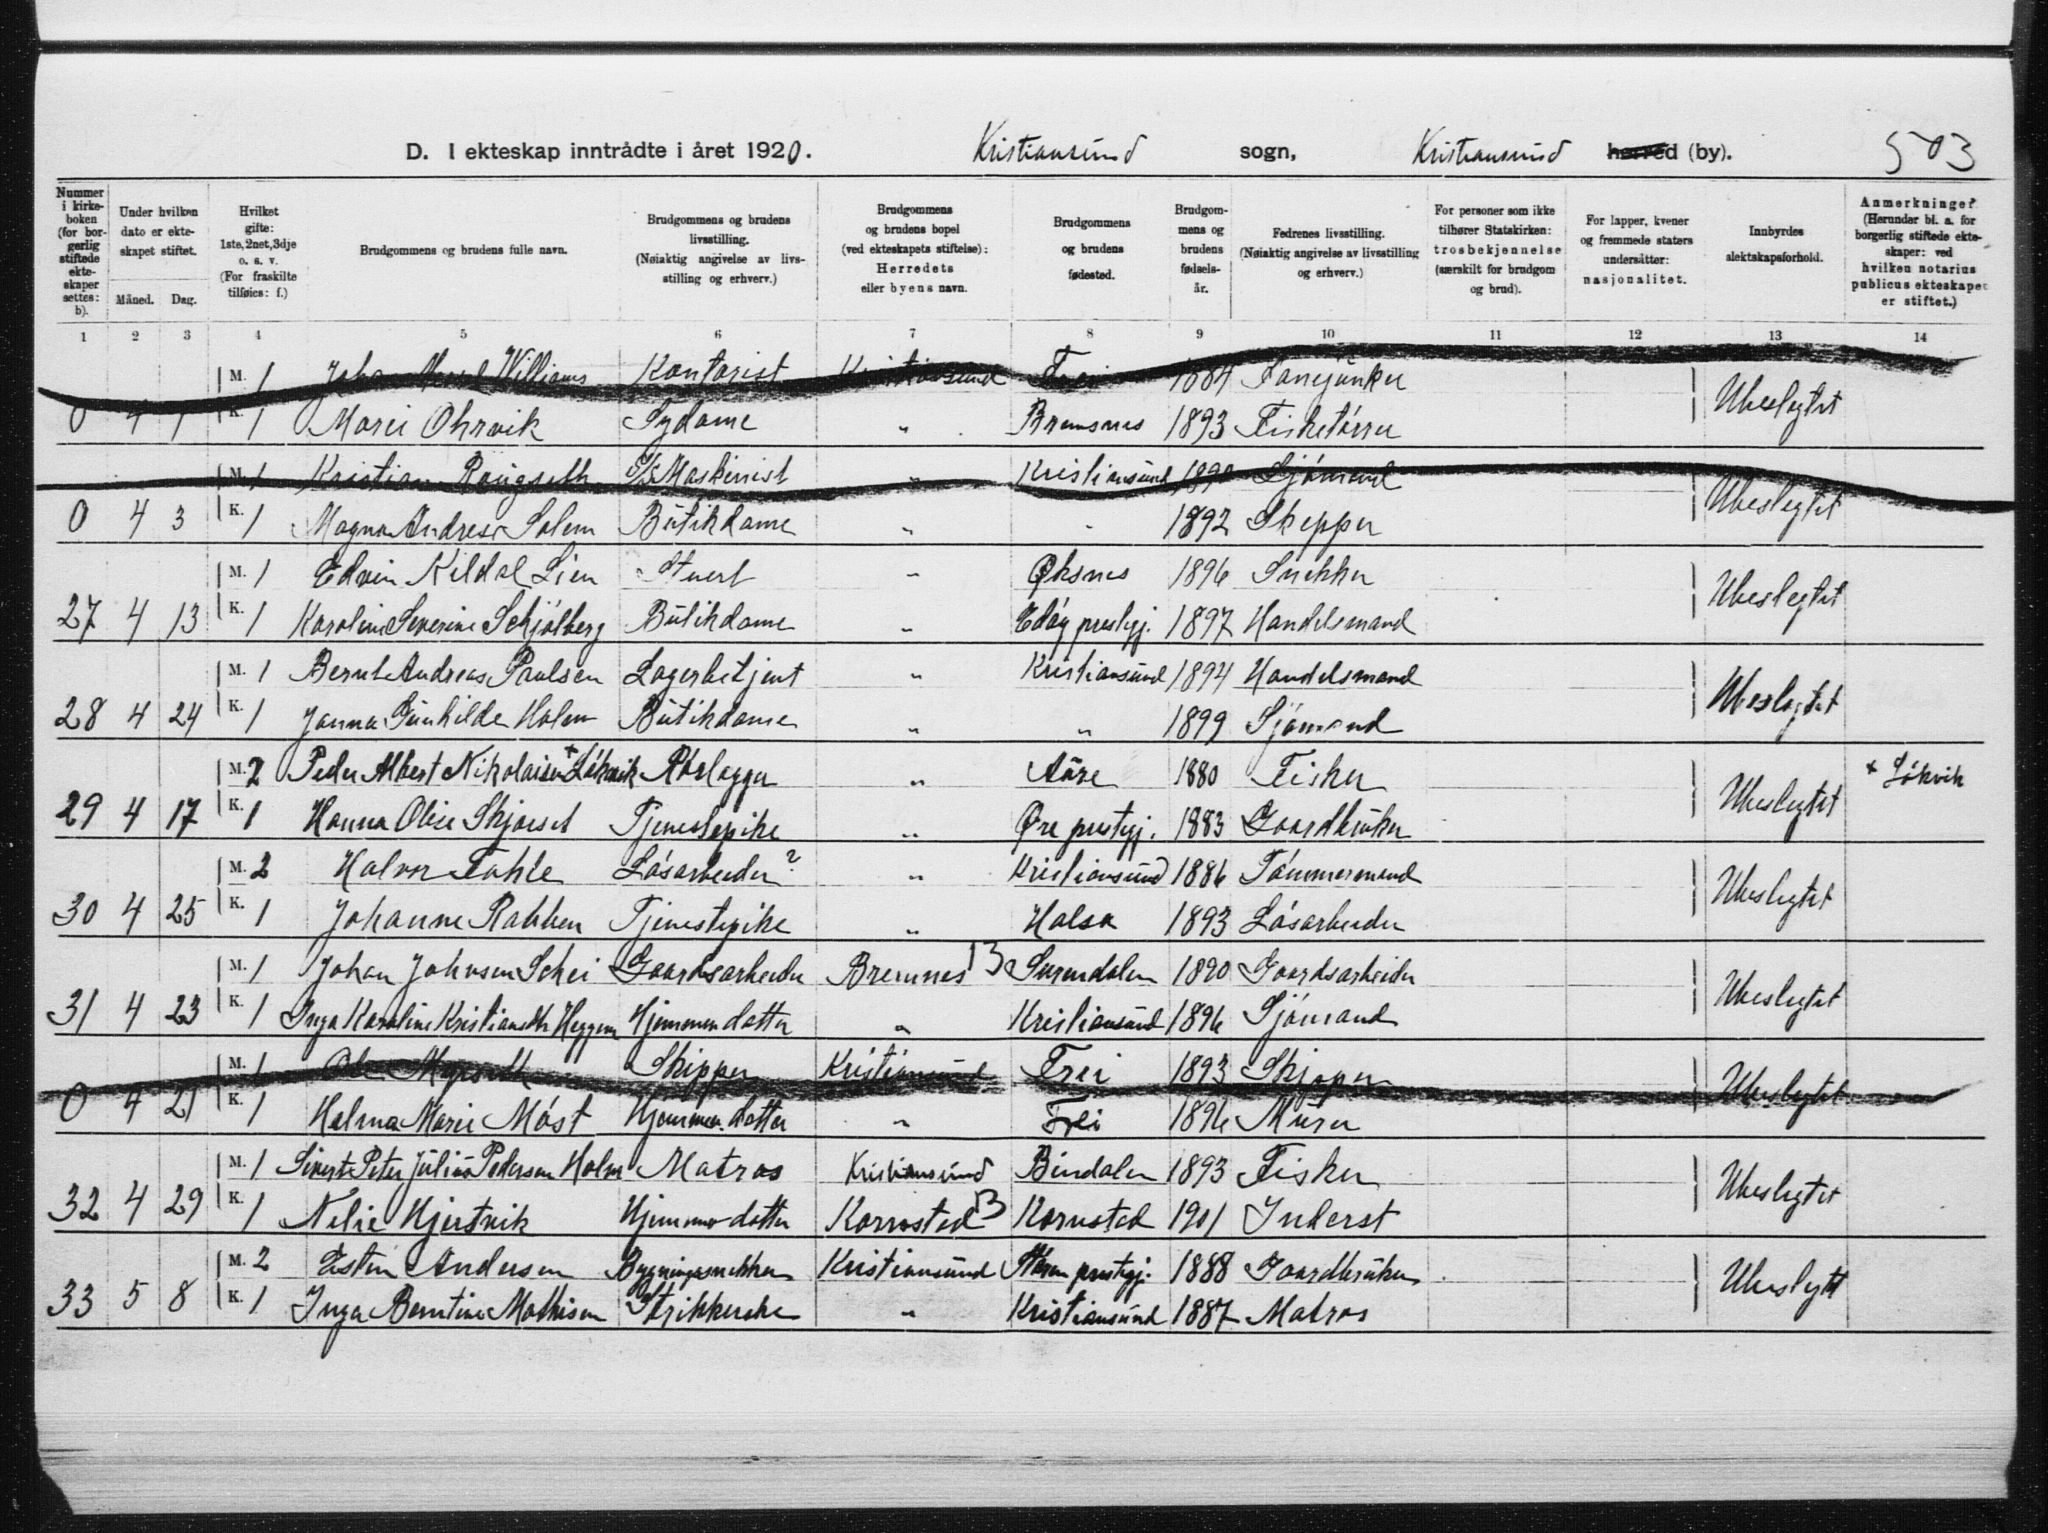 D. I ekteskap inntrådte i året 1920. Kristiansund sogn, Kristiansund herred (by). 503
Nummer i kirkeboken (for borgerlig stiftede ekteskaper settes: b). | Under hvilken dato er ekteskapet stiftet. Måned. Dag. | Hvilket gifte: 1ste, 2net, 3dje o. s. v. (For fraskilte tilføies: f.) | Brudgommens og brudens fulle navn. | Brudgommens og brudens livsstilling. (Nøiaktig angivelse av livsstilling og erhverv.) | Brudgommens og brudens bopel (ved ekteskapets stiftelse): Herredets eller byens navn. | Brudgommens og brudens fødested. | Brudgommens og brudens fødselsår. | Fedrenes livsstilling. (Nøiaktig angivelse av livsstilling og erhverv.) | For personer som ikke tilhører Statskirken: trosbekjennelse (særskilt for brudgom og brud). | For lapper, kvener og fremmede staters undersåtter: nasjonalitet. | Innbyrdes slektskapsforhold. | Anmerkninger (Herunder bl. a. for borgerlig stiftede ekteskaper: ved hvilken notarius publicus ekteskapet er stiftet.)
1 2 3 4 5 6 7 8 9 10 11 12 13 14
M. 1 Johan Williams Kontorist Kristiansund Frei 1884 Fanejunker
0 4 1 K. 1 Marei Ohrvik Sydame „ Bremsnes 1893 Fisketörrer Ubeslegtet
M. 1 Kristian Rougseth Maskinist „ Kristiansund 1890 Sjömand
0 4 3 K. 1 Magna Andrea Solem Butikdame „ „ 1892 Skepper Ubeslegtet
M. 1 Edvin Kildal Lien Stuert „ Øksnes 1896 Snekker
27 4 13 K. 1 Karoline Severine Schjölberg Butikdame „ Edöy prestgj. 1897 Handelsmand Ubeslegtet
M. 1 Bernt Andreas Paulsen Lagerbetjent „ Kristiansund 1894 Handelsmand
28 4 24 K. 1 Janna Gunhilde Holm Butikdame „ „ 1899 Sjömand Ubeslegtet
M. 2 Peder Albert Nikolaisen + Lökvik Rörlegger „ Aure 1880 Fisker + Lökvik
29 4 17 K. 1 Hanna Oline Skjörset Tjenestepike „ Øre prestgj. 1883 Gaardbruker Ubeslegtet
M. 2 Halvor Fahle Lösarbeider? „ Kristiansund 1886 Tömmermand
30 4 25 K. 1 Johanne Rabben Tjenestepike „ Halsa 1893 Lösarbeider Ubeslegtet
M. 1 Johan Johnsen Schei Gaardsarbeider Bremnes B Surendalen 1890 Gaardsarbeider
31 4 23 K. 1 Inga Karoline Kristiansdtr Heggem Hjemmev datter „ Kristiansund 1896 Sjömand Ubeslegtet
M. 1 Ole Myrseth Skipper Kristiansund Frei 1893 Skjepper
0 4 21 K. 1 Helma Marie Möst Hjemmev. datter „ Frei 1896 Murer Ubeslegtet
M. 1 Sivert Peter Julius Pedersen Holm Matros Kristiansund Bindalen 1893 Fisker
32 4 29 K. 1 Nelie Hjertvik Hjemmev datter Kornstad B Kornstad 1901 Inderst Ubeslegtet
M. 2 Esten Andersen Bygningssnekker Kristiansund prestgj. 1888 Gaardbruker
33 5 8 K. 1 Inga Berntine Mathisen Strikkerske „ Kristiansund 1887 Matros Ubeslegtet